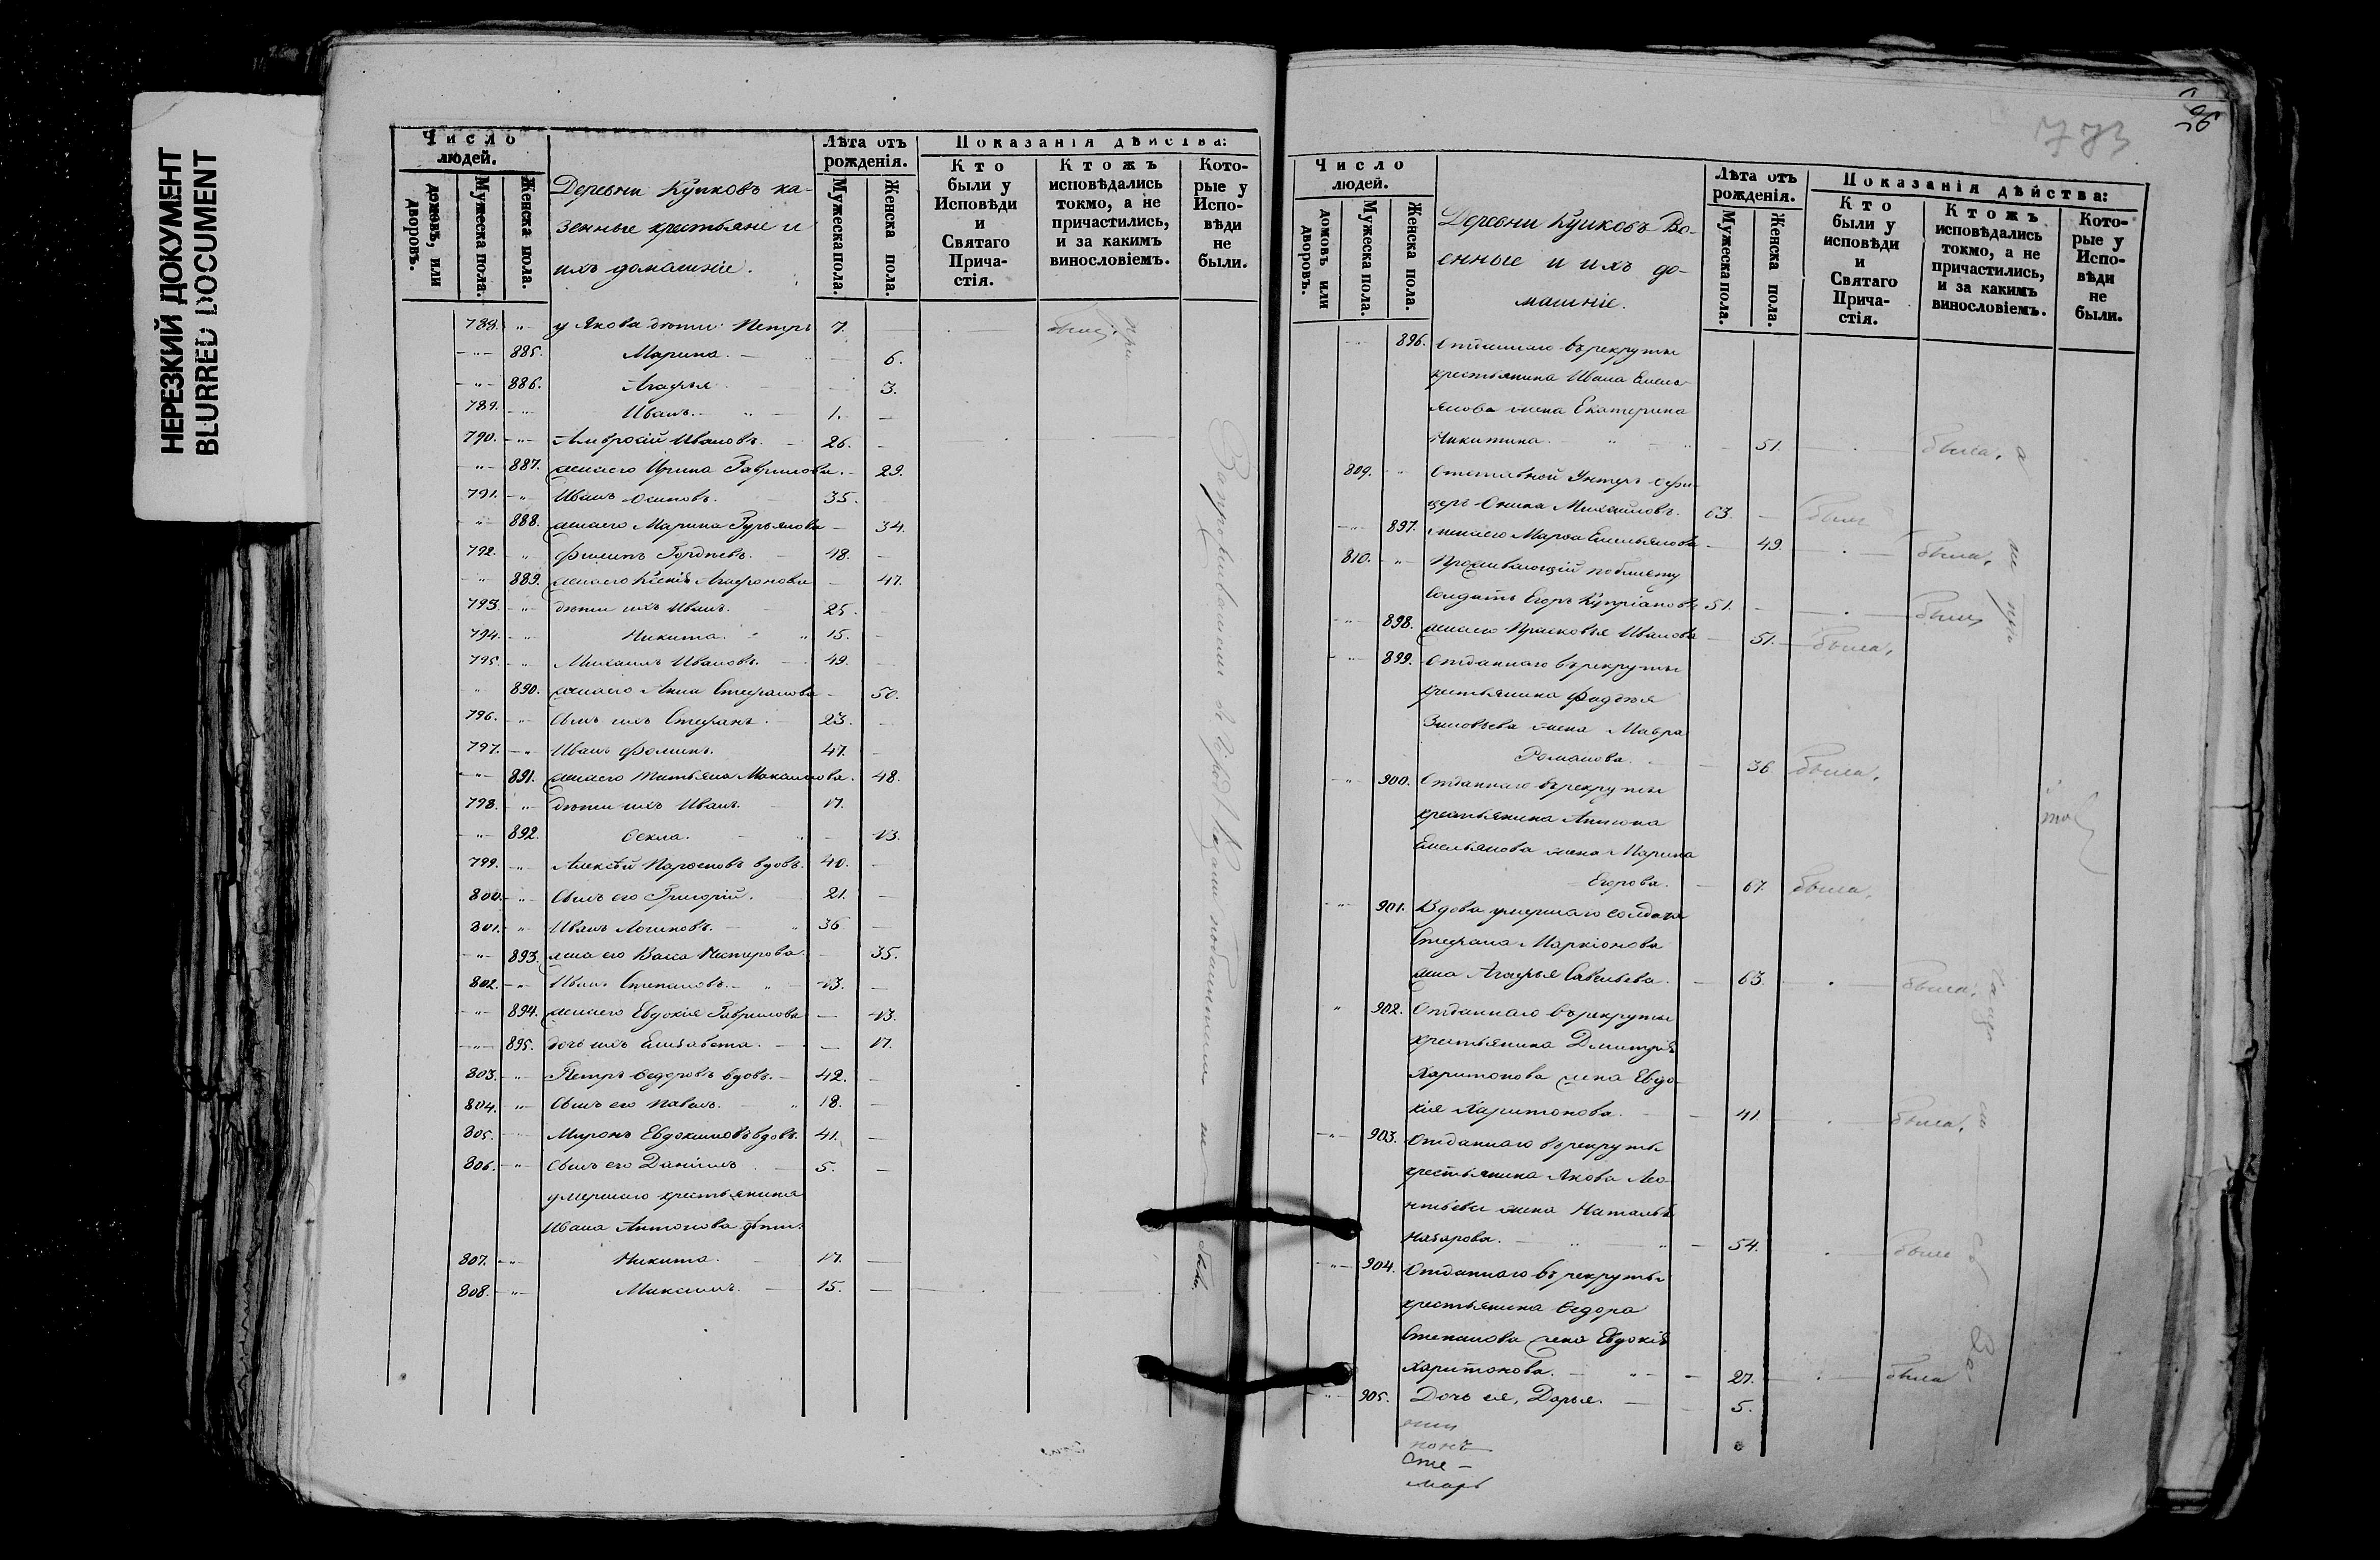 НЕРЕЗКИЙ ДОКУМЕНТ
BLURRED DOCUMENT
Число людей.
домовъ, или дворовъ.
Мужеска пола.
Женска пола.
Деревни Куиковъ ка-
зенные крестьяне и
ихъ домашніе.
Лѣта отъ рожденія.
Мужеска пола.
Женска пола.
Показанія дѣйства:
Кто были у Исповѣди и Святаго Прича-стія.
Ктожъ исповѣдались токмо, а не причастились, и за какимъ винословіемъ.
Кото-рые у Испо-вѣди не были.
788. „ у Якова дѣти: Петръ 7.
„ 885. Марина. 6.
„ 886. Агафья 3.
789. „ Иванъ. 1.
790. „ Амвросій Ивановъ. 26.
„ 887. жена его Ирина Гаврилова. 29.
791. „ Иванъ Осиповъ. 35.
„ 888. жена его Марина Гурьянова 34.
792. „ Филипъ Гордѣевъ. 48.
„ 889. жена его Ксенія Агафонова 47.
793. „ дѣти ихъ Иванъ. 25.
794. „ Никита. 15.
795. „ Михаилъ Ивановъ. 49.
„ 890. жена его Анна Стефанова 50.
796. „ Сынъ ихъ Стефанъ. 23.
797. „ Иванъ Фоминъ. 47.
„ 891. жена его Татьяна Максимова. 48.
798. „ дѣти ихъ Иванъ. 17.
„ 892. Ѳекла. 13.
799. „ Алексѣй Парѳеновъ вдовъ. 40.
800. „ Сынъ его Григорій. 21.
801. „ Иванъ Логиновъ. 36
„ 893. жена его Васса Нестерова. 35.
802. „ Иванъ Степановъ. 43.
„ 894. жена его Евдокія Гаврилова 43.
„ 895. дочь ихъ Елизавета. 17.
803. „ Петръ Ѳедоровъ вдовъ. 42.
804. „ Сынъ его Павелъ. 18.
805. „ Миронъ Евдокимовъ вдовъ. 41.
806. „ Сынъ его Даніилъ 5.
умершаго крестьянина
Ивана Антонова дѣти:
807. „ Никита. 17.
808. „ Максимъ. 15.
773
Число людей.
домовъ или дворовъ.
Мужеска пола.
Женска пола.
Деревни Куиковъ Во-
енные и ихъ до-
машніе.
Лѣта отъ рожденія.
Мужеска пола.
Женска пола.
Показанія дѣйства:
Кто были у исповѣди и Святаго Прича-стія.
Ктожъ исповѣдались токмо, а не причастились, и за какимъ винословіемъ.
Кото-рые у Испо-вѣди не были.
896. Отданнаго въ рекруты
крестьянина Ивана Емель-
янова жена Екатерина
Никитина. 51. была,
809. „ Отставной Унтеръ офи-
церъ Михайловъ. 63. былъ
„ 897. жена его Марѳа Емельянова 49. была,
810. „ Проживающій по билету
Солдатъ Егоръ Купріановъ 51. былъ
„ 898. жена его Прасковья Иванова 51. была,
„ 899. Отданнаго въ рекруты
крестьянина Фаддея
Зиновьева жена Мавра
Романова. 36 была,
„ 900. Отданнаго въ рекруты
крестьянина Антона
Емельянова жена Марина
Егорова. 67. была,
„ 901. Вдова умершаго солдата
Стефана Маркіонова
жена Агафья Савельева. 63. была,
„ 902. Отданнаго въ рекруты
крестьянина Дмитрія
Харитонова жена Евдо-
кія Харитонова. 41. была,
„ 903. Отданнаго въ рекруты
крестьянина Якова Лео-
нтьева жена Наталья
Назарова. 54. была
„ 904. Отданнаго въ рекруты
крестьянина Ѳедора
Степанова жена Евдокія
Харитонова. 27. была
„ 905. Дочь ея, Дарья. 5.